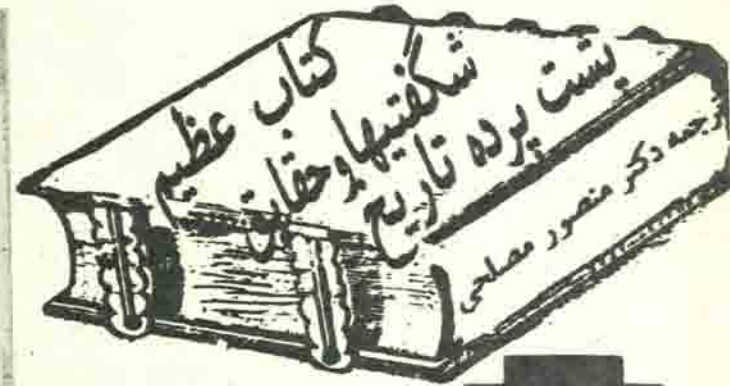 کتاب عظیم
شگفتیها و حقایق
پشت پرده تاریخ
ترجمه دکتر منصور مصلحی